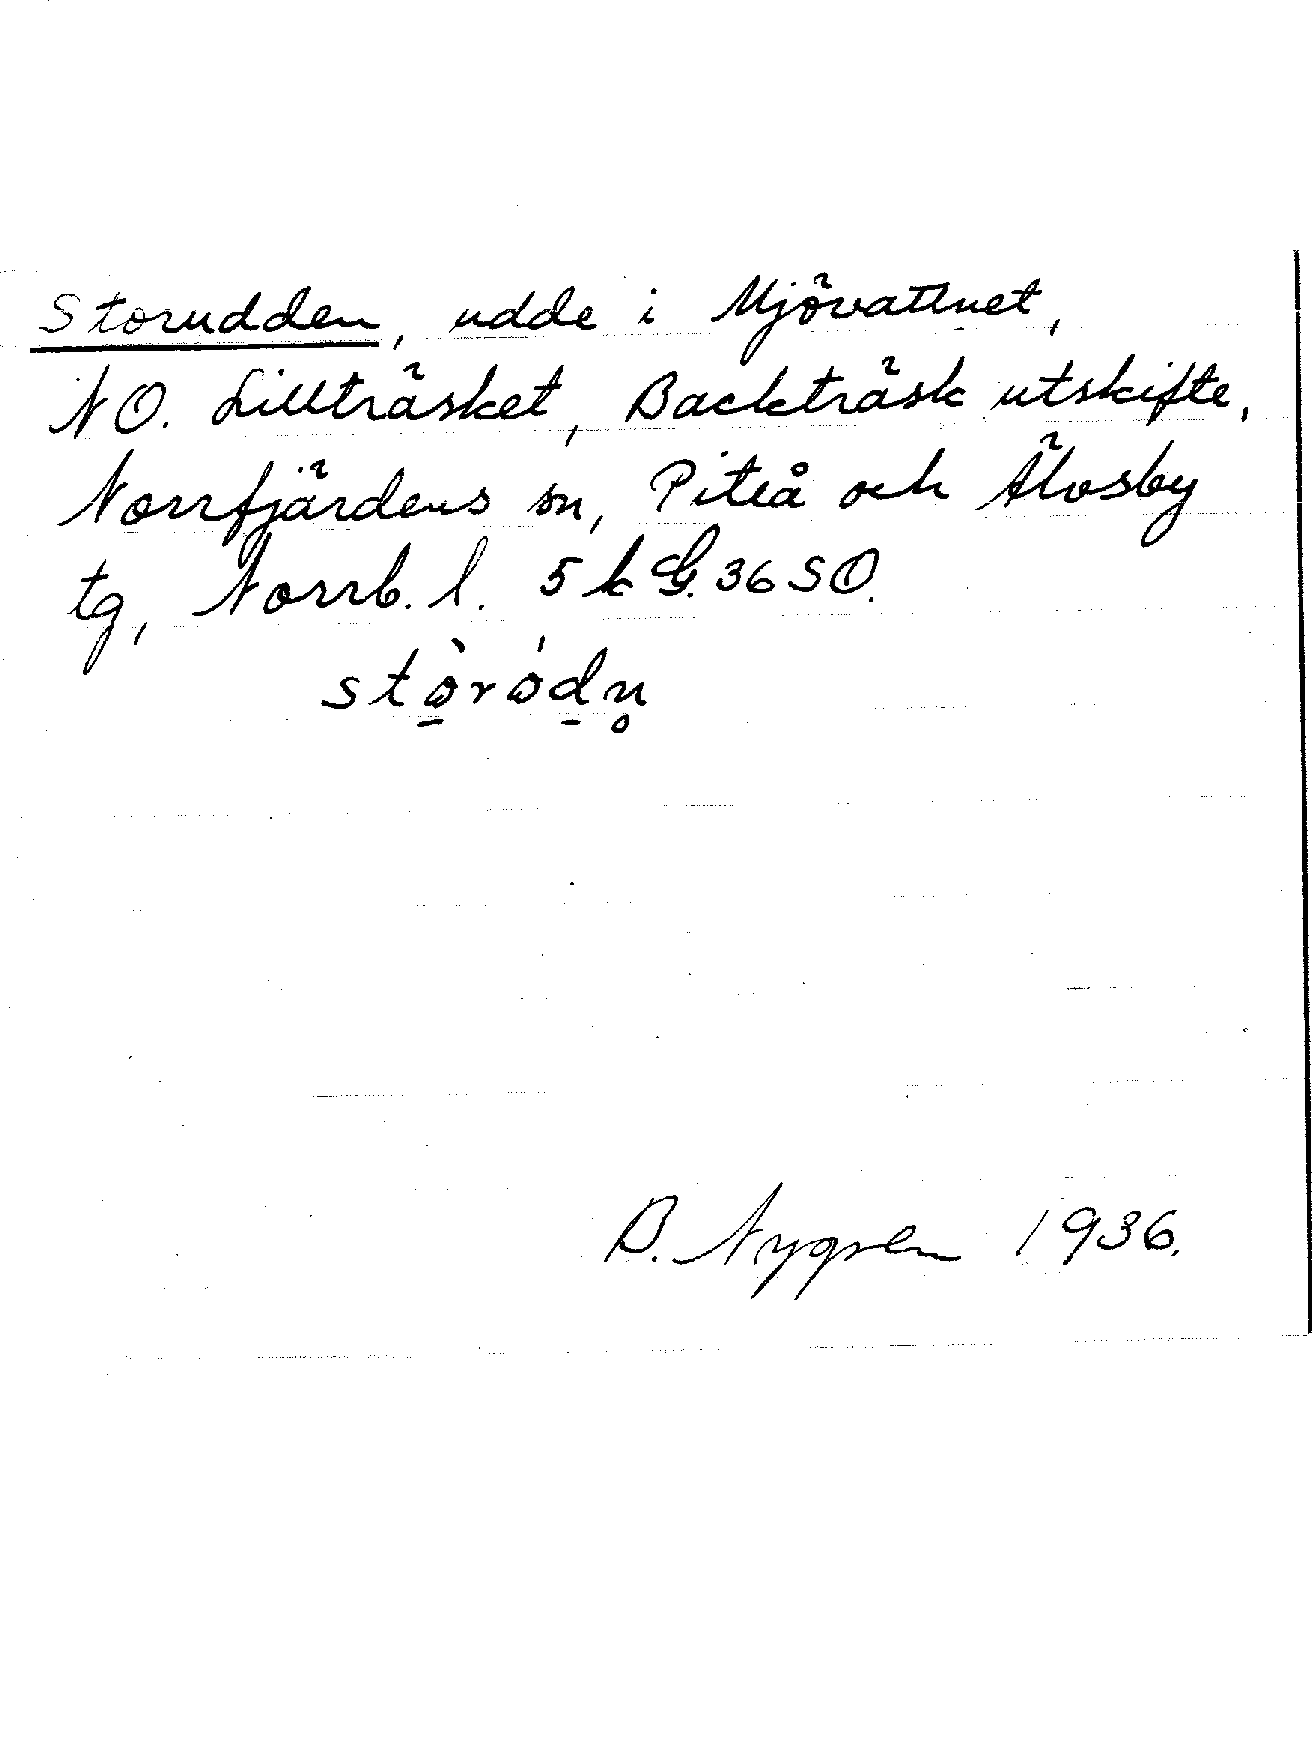 Storudden, udde i Mjövattnet,
NO. Lillträsket, Backträsk utskifte,
Norrfjärdens sn, Piteå och Älvsby
tg, Norrb. l. 5 k G. 36 SO.
stò̱ródd̥n̥
B. Nygren 1936.